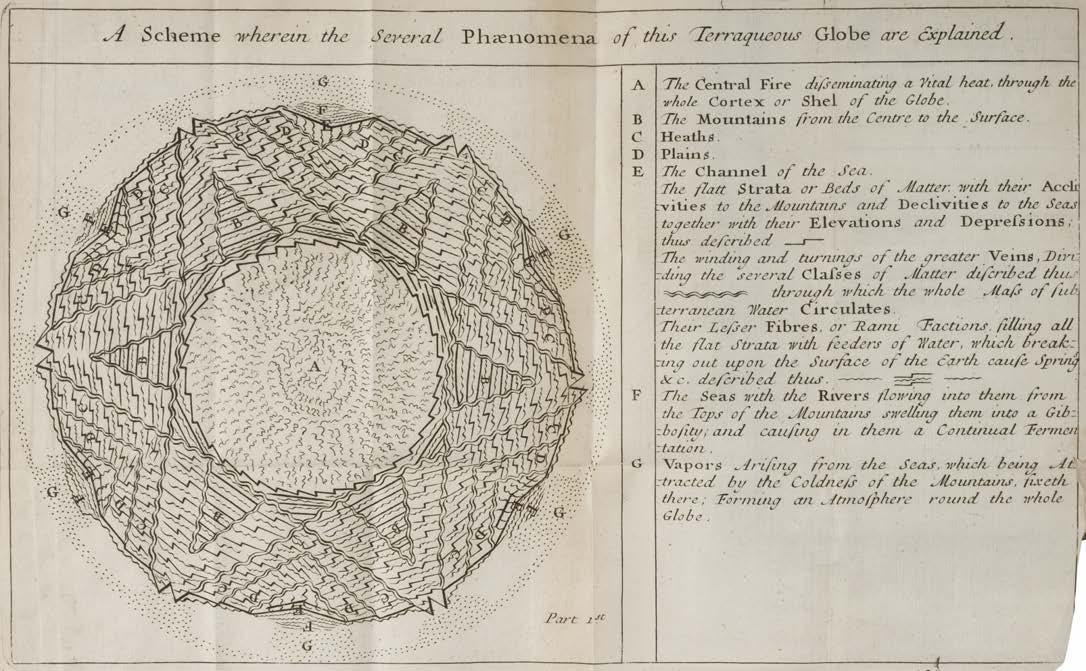 A Scheme wherein the Several Phænomena of this Terraqueous Globe are Explained.
A The Central Fire diſseminating a Vital heat, through the
whole Cortex or Shel of the Globe.
B The Mountains from the Centre to the Surface.
C Heaths.
D Plains.
E The Channel of the Sea.
The flatt Strata or Beds of Matter, with their Accli
-vities to the Mountains and Declivities to the Seas
together with their Elevations and Depreſsions,
thus deſcribed
The winding and turnings of the greater Veins, Divi-
-ding the several Claſses of Matter diſcribed thus
through which the whole Maſs of ſub
-terranean Water Circulates.
Their Leſser Fibres, or Rami Factions, filling all
the flat Strata with feeders of Water, which break-
-ing out upon the Surface of the Earth cauſe Spring
&c. deſcribed thus.
F The Seas with the Rivers flowing into them from
the Tops of the Mountains swelling them into a Gib-
-boſity; and cauſing in them a Continual Fermen
-tation.
G Vapors Ariſing from the Seas, which being At
-tracted by the Coldneſs of the Mountains, fixeth
there; Forming an Atmoſphere round the whole
Globe.
G
F
E
D
D
C
C
B
B
G
F
E
D
C
G
F
E
D
C
B
A
B
G
F
E
D
C
B
B
G
F
E
D
C
C
D
E
D
C
F
G
Part 1st